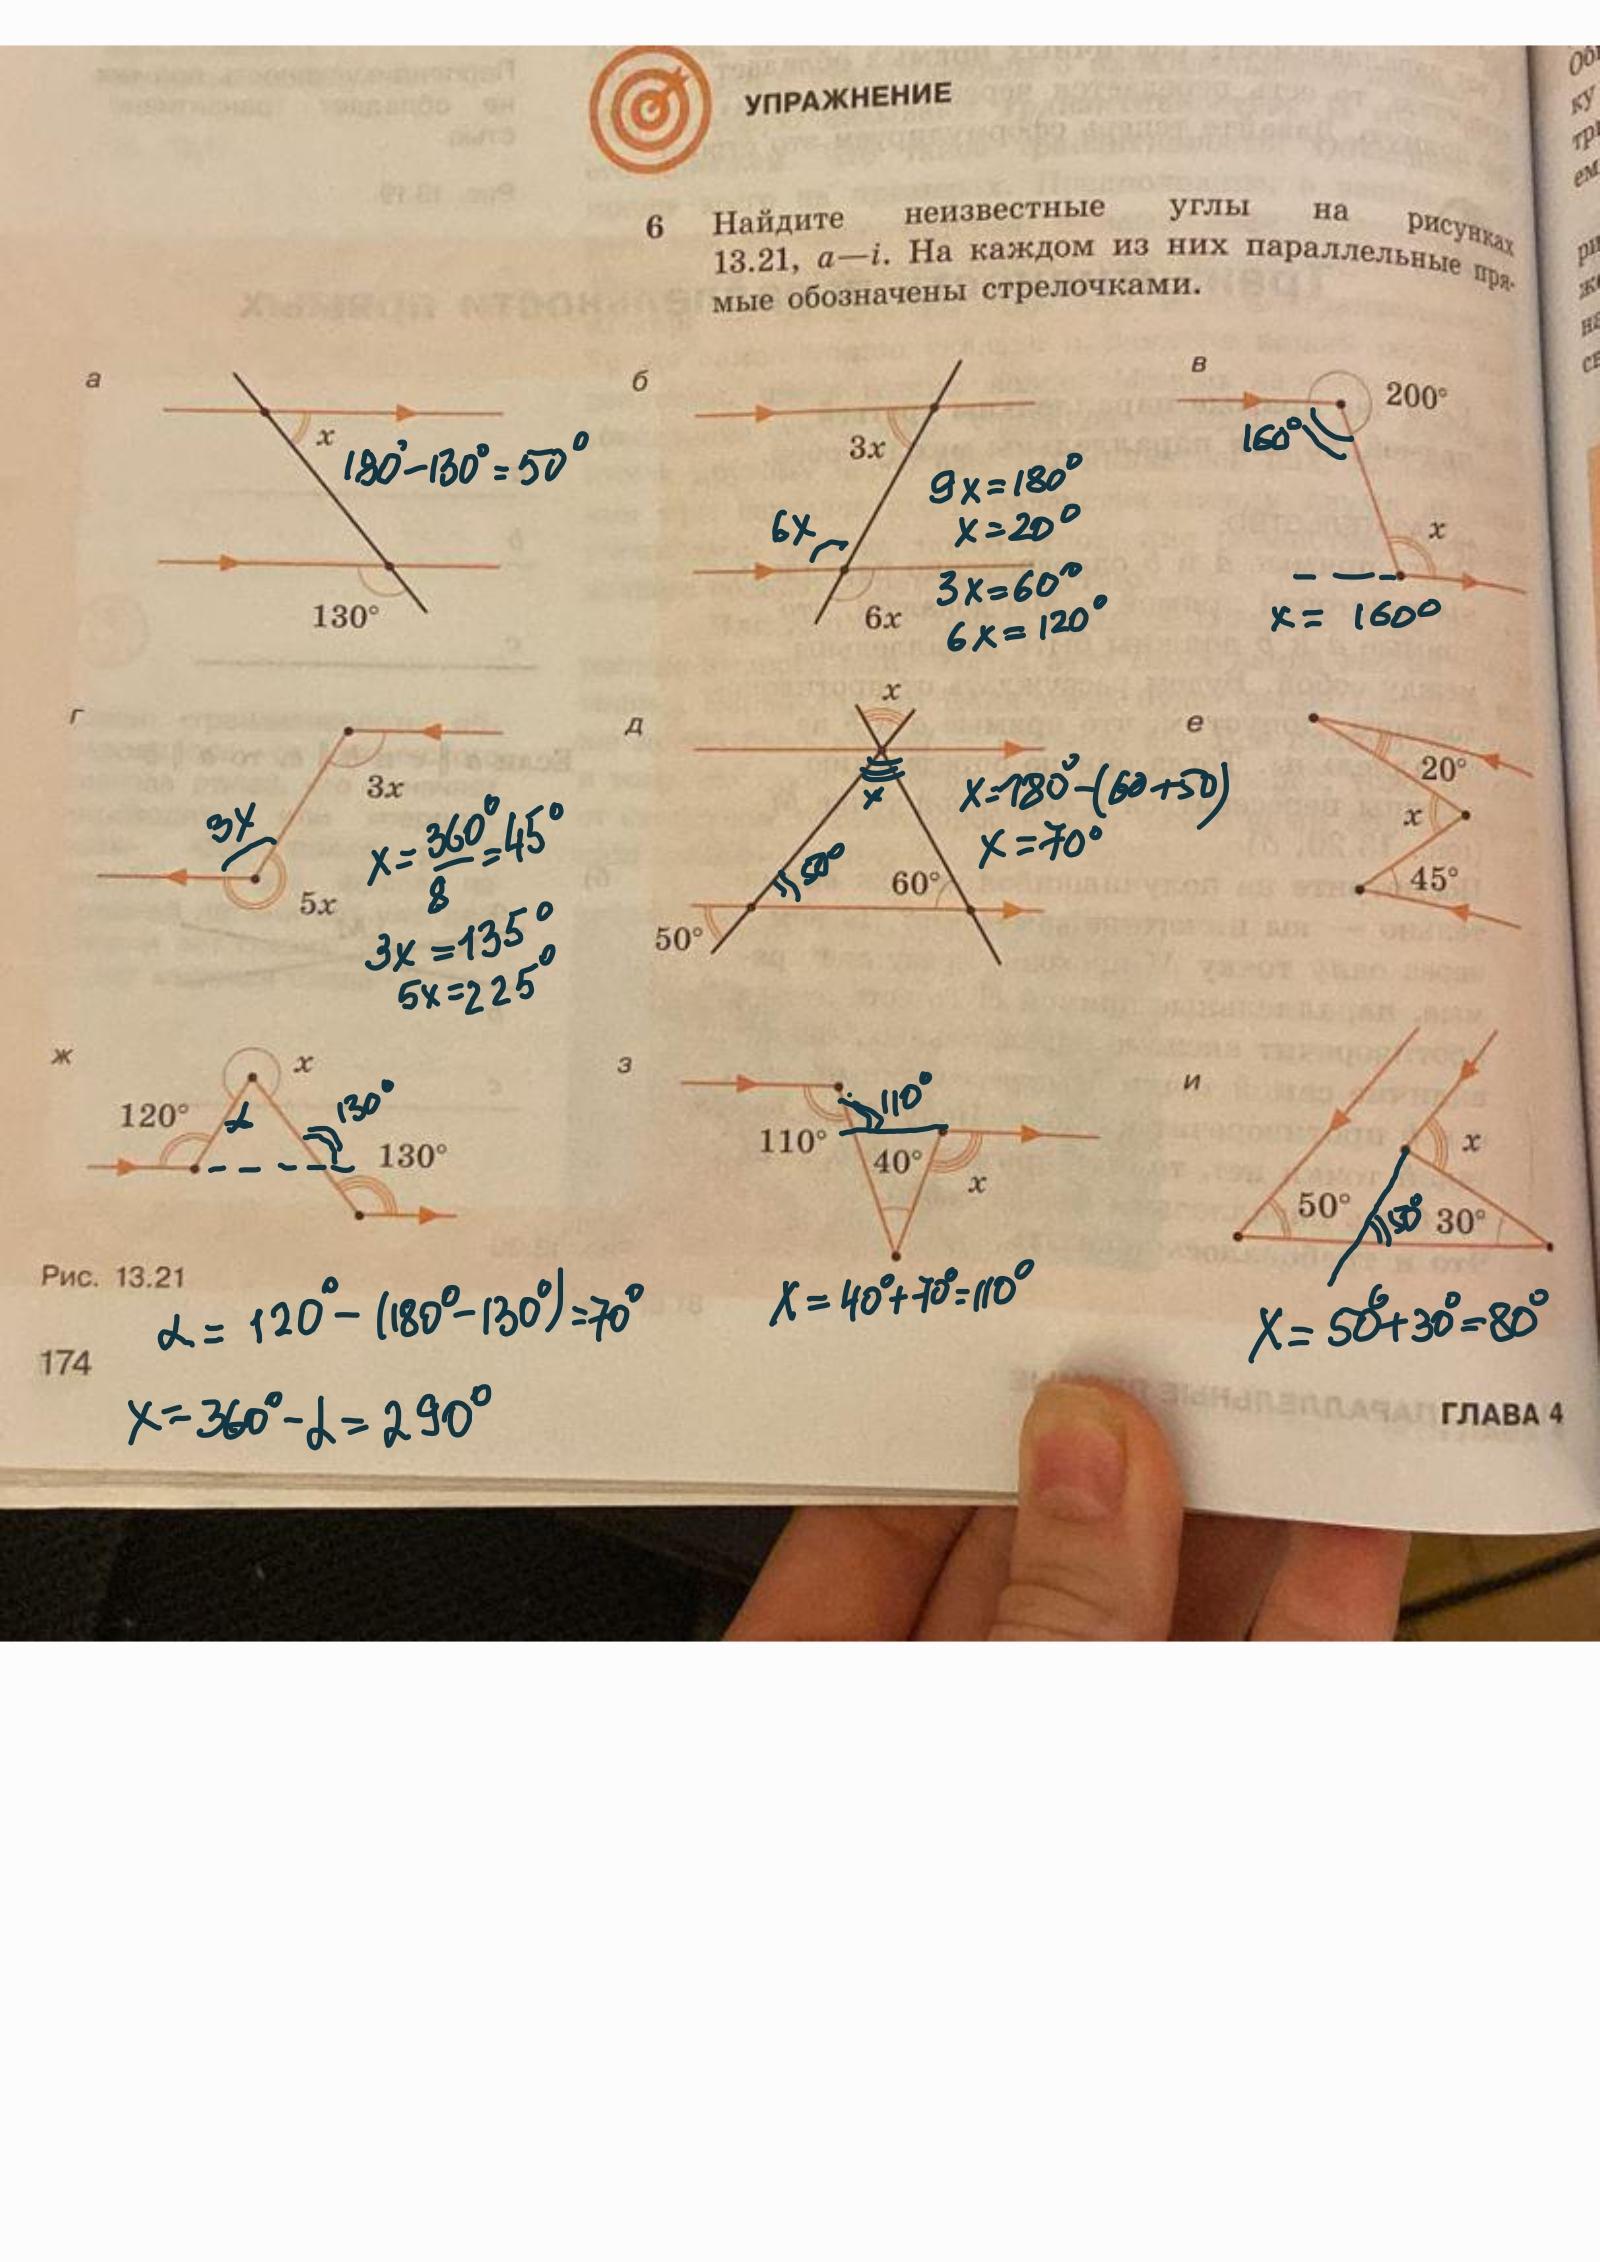 УПРАЖНЕНИЕ
6 Найдите неизвестные углы на рисунках
13.21, a—i. На каждом из них параллельные пря-
мые обозначены стрелочками.
а
x
180°-130°=50°
130°
б
3x
6x
9x=180°
x=20°
3x=60°
6x
6x=120°
в
200°
160°
x
x= 160°
г
3x
3x
5x
x=360°/8=45°
3x=135°
5x=225°
д
x
x
50°
60°
50°
x=180°-(60+50)
x=70°
е
20°
x
45°
ж
x
120°
α
130°
130°
з
110°
110°
40°
x
и
x
50°
50°
30°
Рис. 13.21
α= 120°-(180°-130°)=70°
x=360°-α=290°
x=40°+70°=110°
x=50°+30°=80°
174
ГЛАВА 4